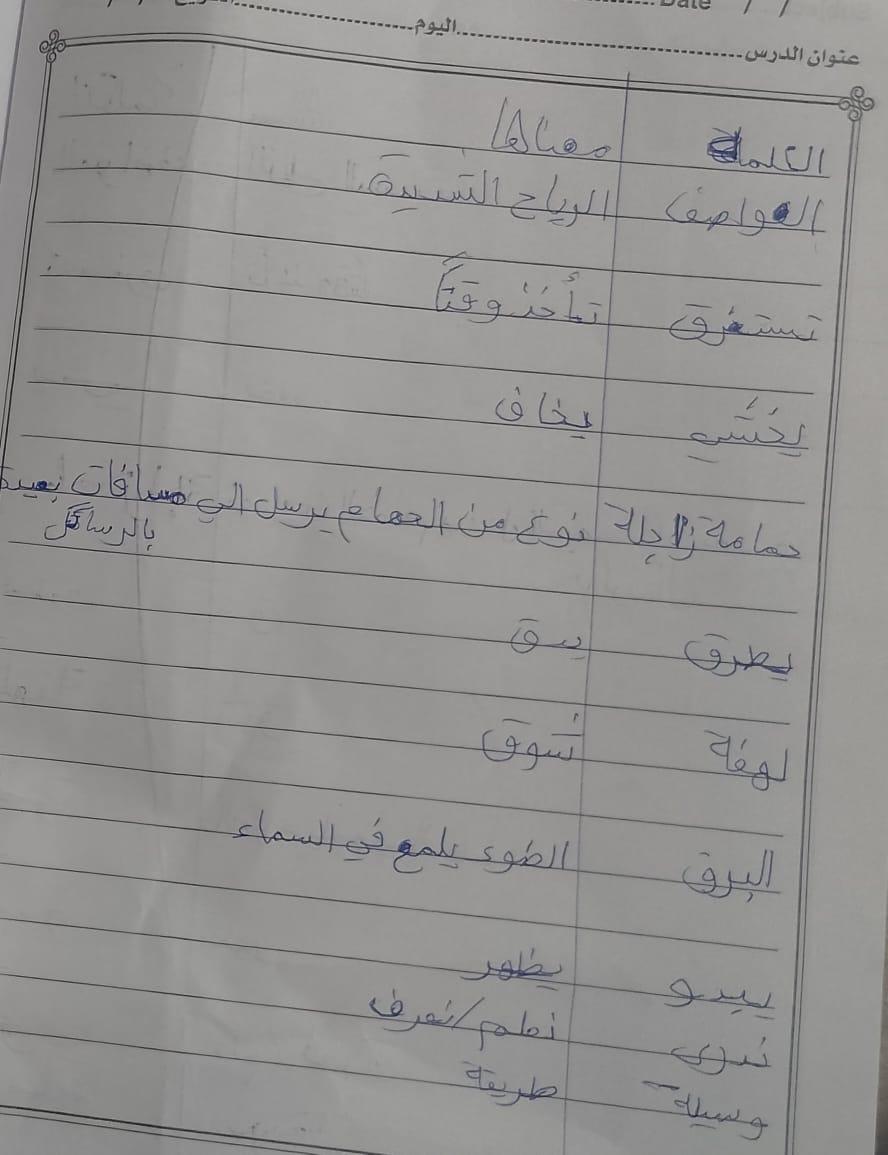 Date / /
اليوم
عنوان الدرس
الكلمة معناها
العواصف الرياح الشديدة
تستغرق تأخذ وقتاً
يخشى يخاف
حمامة زاجلة نوع من الحمام يرسل الي مسافات بعيدة
بالرسائل
يطرق يدق
لهفة شوق
البرق الضوء يلمع في السماء
يبدو يظهر
ندرى نعلم/نعرف
وسيلة طريقة